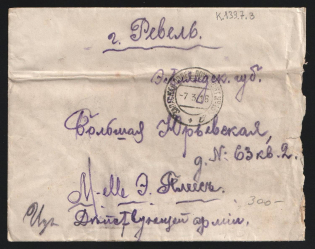 К.139.7.3
г. Ревель.
Эстляндск. губ.
-7.3.16
Большая Юрьевская,
д. № 63 кв. 2.
M-elle Э.
300-
Изъ Действующей армiи.